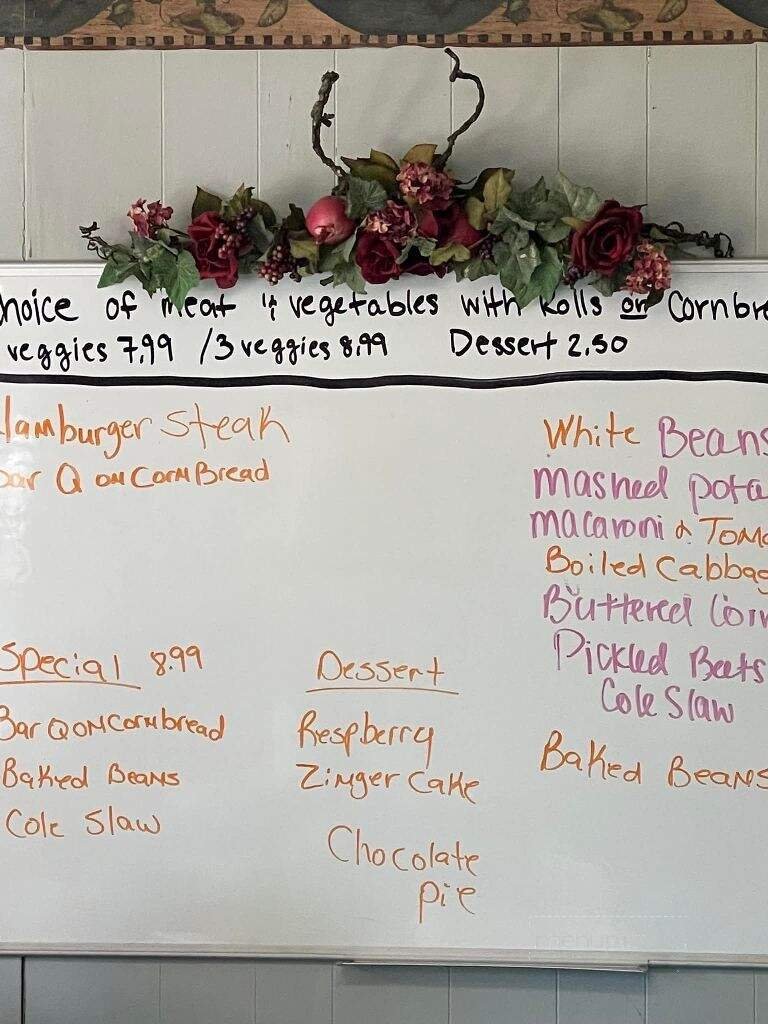 hoice of meat & vegetables with Rolls or Cornbre
veggies 7.99 / 3 veggies 8.99 Dessert 2.50
Hamburger Steak
Bar Q on CornBread
White Beans
mashed pota
macaroni & Toma
Boiled Cabbag
Buttered Corn
Pickled Beets
Cole Slaw
Baked Beans
Special 8.99
Bar Q on Cornbread
Baked Beans
Cole Slaw
Dessert
Respberry
Zinger Cake
Chocolate
pie